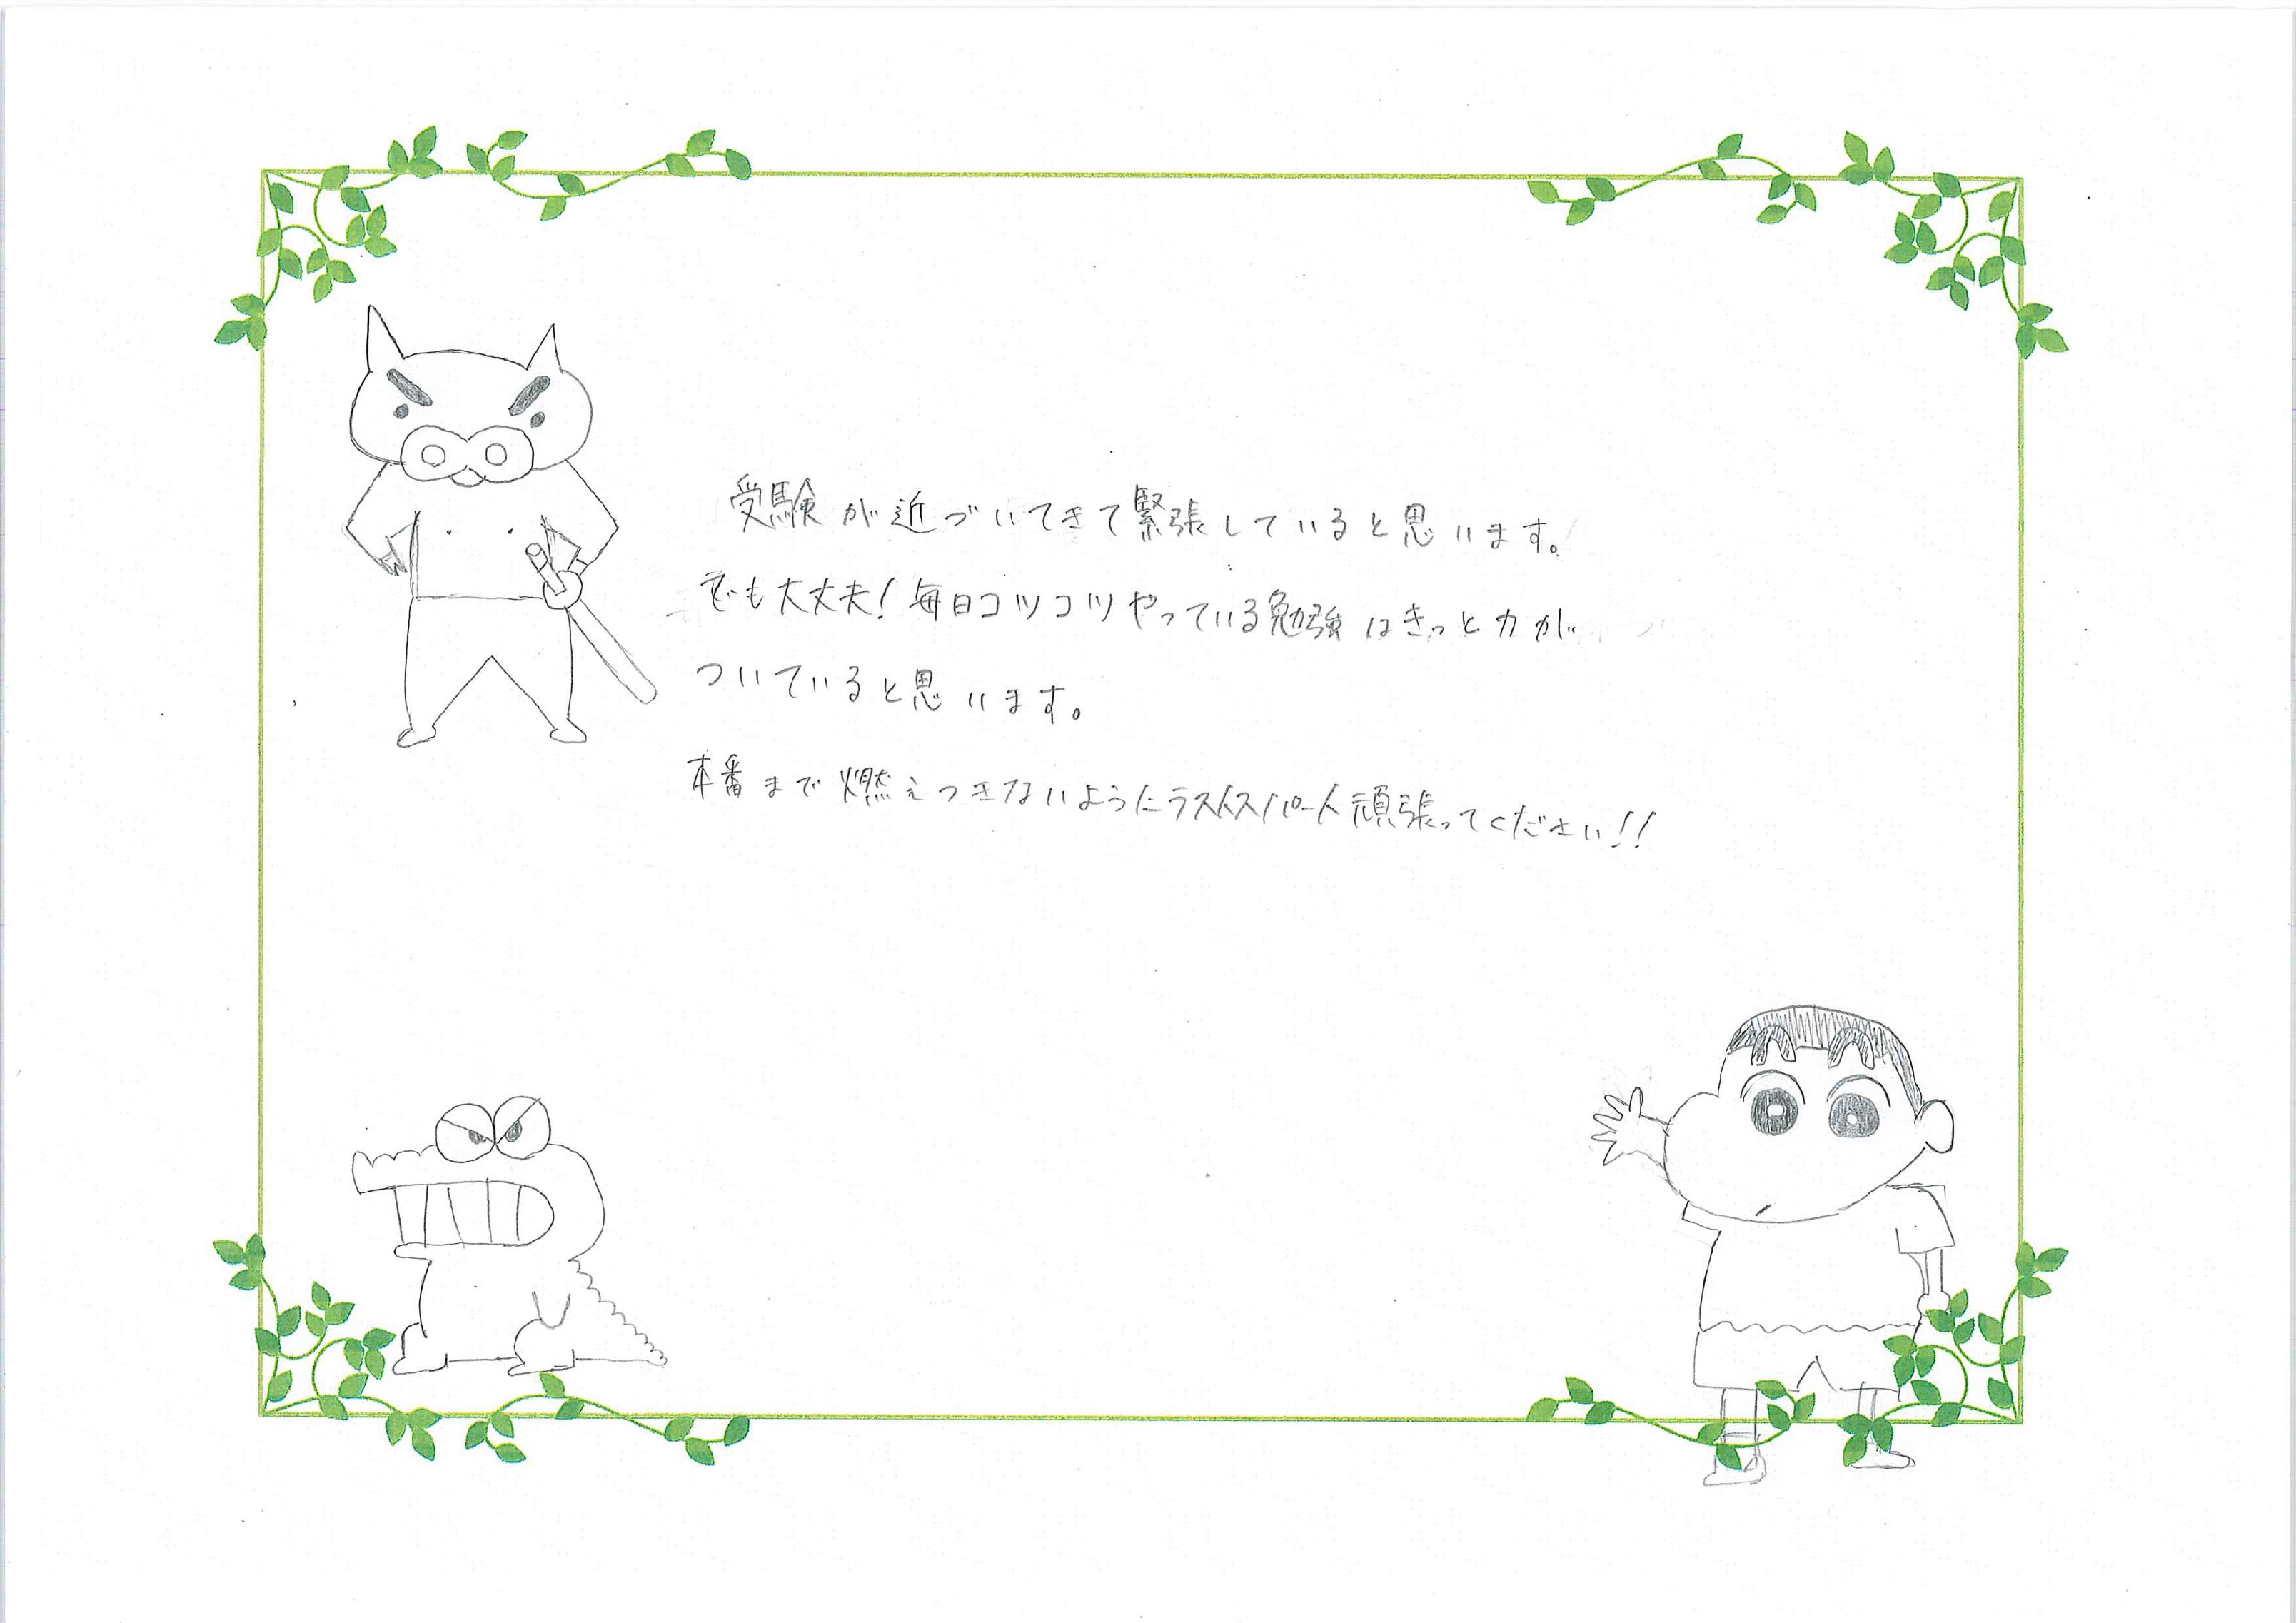 受験が近づいてきて緊張していると思います。
でも大丈夫!毎日コツコツやっている勉強はきっと力が
ついていると思います。
本番まで燃えつきないようにラストスパート頑張ってください!!